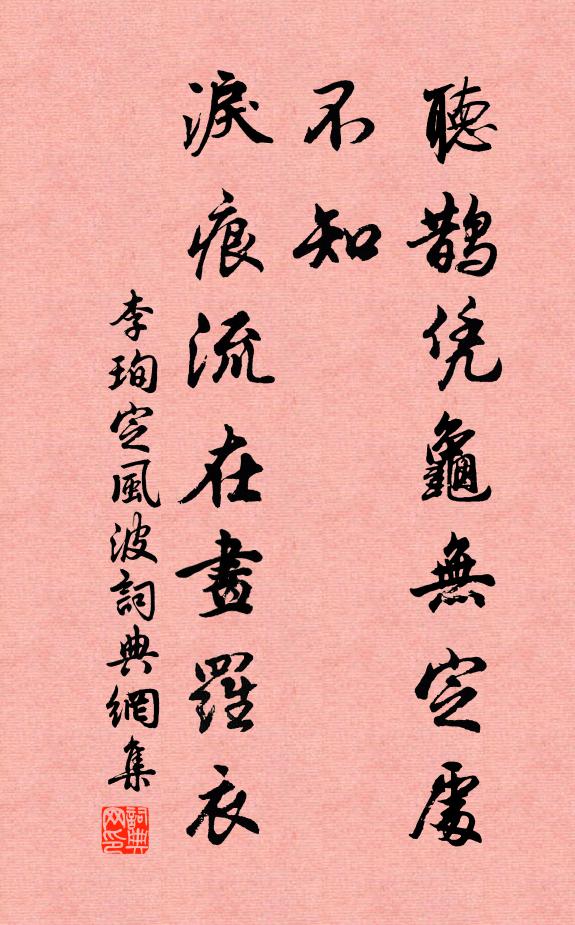 聽鵲凭龜無定處
不知
淚痕流在畫羅衣
李珣定風波詞典網集
詞典网印